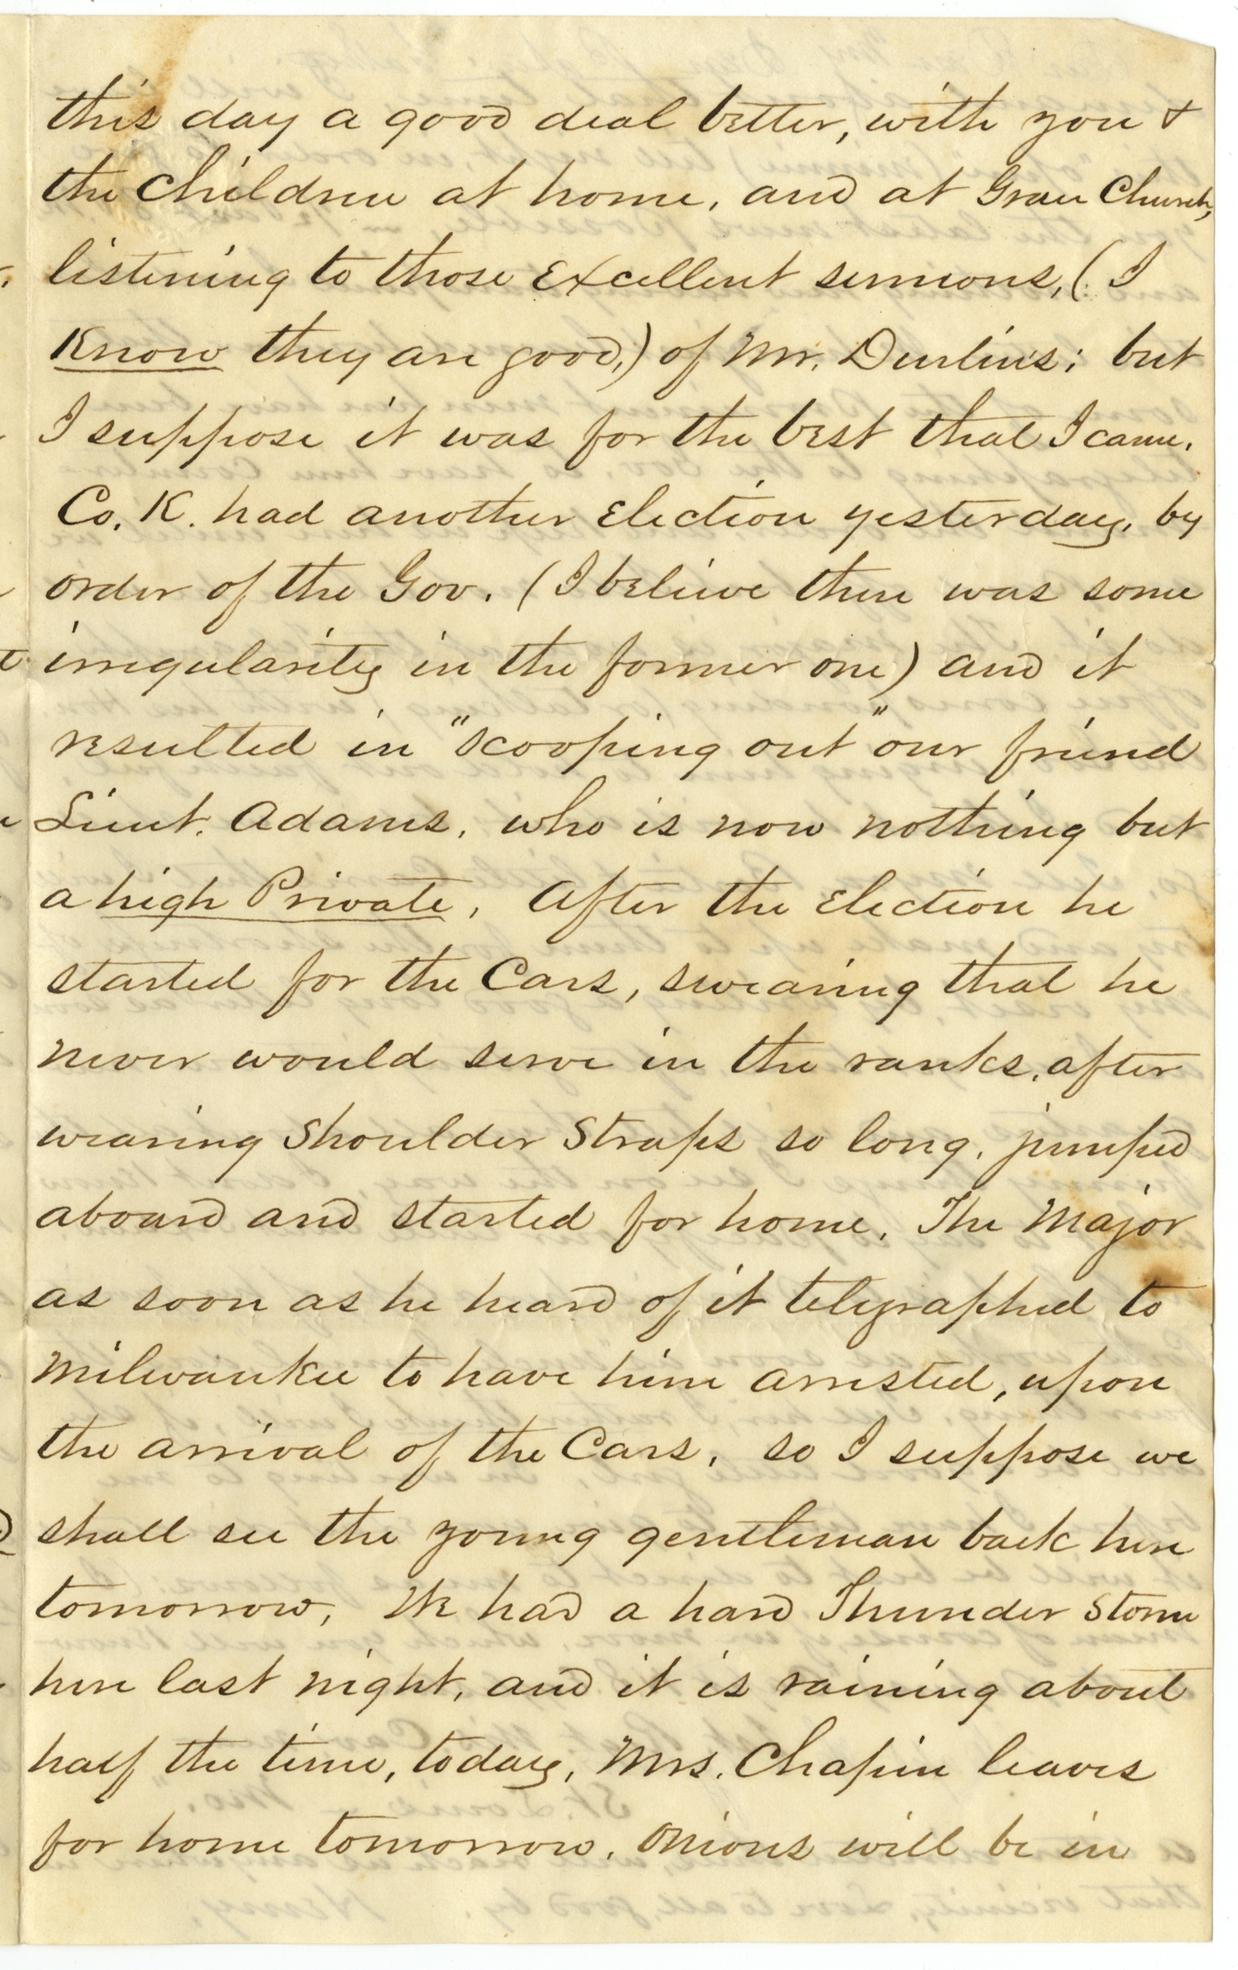 this day a good deal better, with you &
the Children at home, and at Grace Church,
listening to those Excellent sermons, (I
Know they are good,) of Mr. Durlin's; but
I suppose it was for the best that I came.
Co. K. had another Election yesterday, by
order of the Gov. (I believe there was some
irregularity in the former one) and it
resulted in "scooping out" our friend
Lieut. Adams, who is now nothing but
a high Private. After the Election he
started for the Cars, swearing that he
never would serve in the ranks, after
wearing Shoulder Straps so long, jumped
aboard and started for home. The Major
as soon as he heard of it telegraphed to
Milwaukee to have him arrested, upon
the arrival of the Cars, so I suppose we
shall see the young gentleman back here
tomorrow. We had a hard Thunder Storm
here last night, and it is raining about
half the time, today, Mrs. Chapin leaves
for home tomorrow. Onions will be in